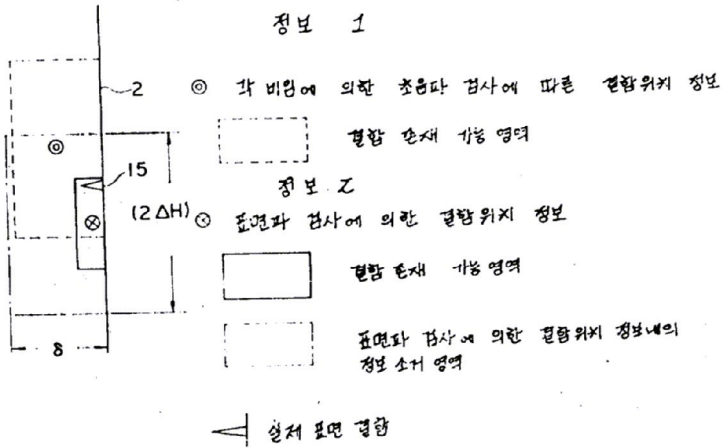 정보 1
2
◎ 각 비임에 의한 초음파 검사에 따른 결함위치 정보
결함 존재 가능 영역
15
정보 2
(2ΔH)
⊗ 표면파 검사에 의한 결함위치 정보
결함 존재 가능 영역
표면파 검사에 의한 결함위치 정보내의
정보 소거 영역
δ
실제 표면 결함